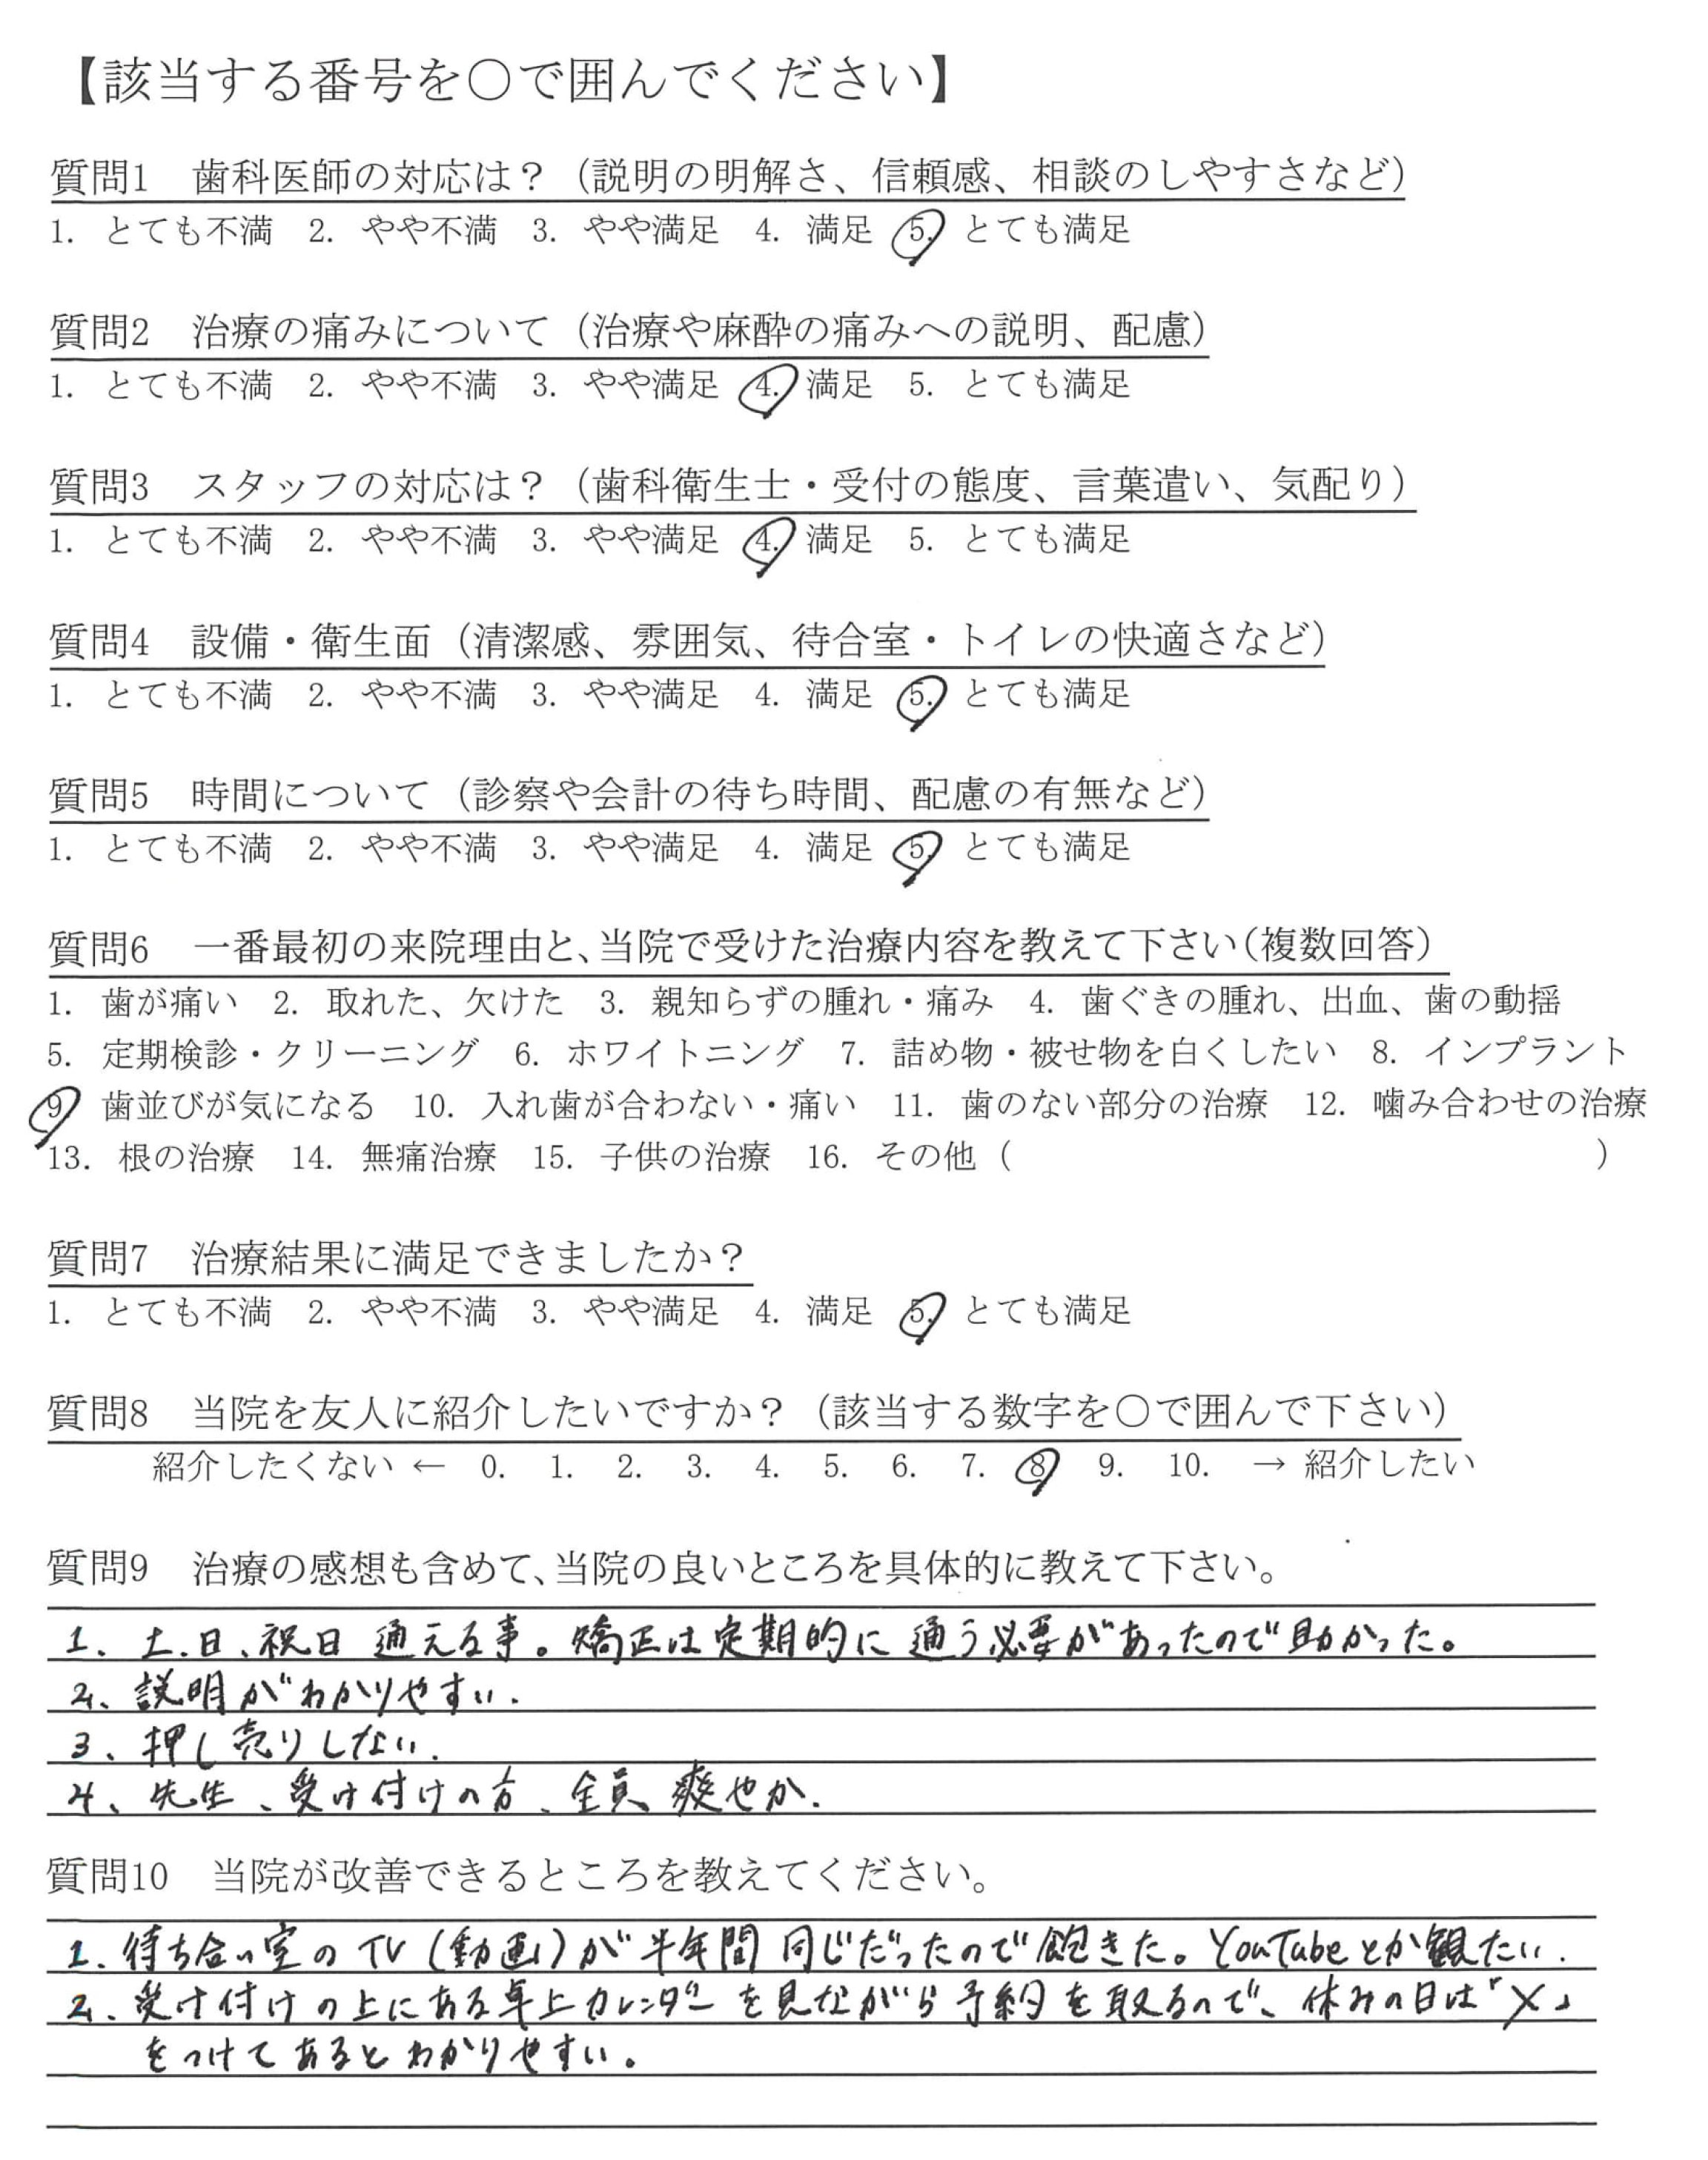 【該当する番号を○で囲んでください】
質問1 歯科医師の対応は？（説明の明解さ、信頼感、相談のしやすさなど）
1. とても不満 2. やや不満 3. やや満足 4. 満足 5. とても満足
質問2 治療の痛みについて（治療や麻酔の痛みへの説明、配慮）
1. とても不満 2. やや不満 3. やや満足 4. 満足 5. とても満足
質問3 スタッフの対応は？（歯科衛生士・受付の態度、言葉遣い、気配り）
1. とても不満 2. やや不満 3. やや満足 4. 満足 5. とても満足
質問4 設備・衛生面（清潔感、雰囲気、待合室・トイレの快適さなど）
1. とても不満 2. やや不満 3. やや満足 4. 満足 5. とても満足
質問5 時間について（診察や会計の待ち時間、配慮の有無など）
1. とても不満 2. やや不満 3. やや満足 4. 満足 5. とても満足
質問6 一番最初の来院理由と、当院で受けた治療内容を教えて下さい（複数回答）
1. 歯が痛い 2. 取れた、欠けた 3. 親知らずの腫れ・痛み 4. 歯ぐきの腫れ、出血、歯の動揺
5. 定期検診・クリーニング 6. ホワイトニング 7. 詰め物・被せ物を白くしたい 8. インプラント
9. 歯並びが気になる 10. 入れ歯が合わない・痛い 11. 歯のない部分の治療 12. 噛み合わせの治療
13. 根の治療 14. 無痛治療 15. 子供の治療 16. その他（ ）
質問7 治療結果に満足できましたか？
1. とても不満 2. やや不満 3. やや満足 4. 満足 5. とても満足
質問8 当院を友人に紹介したいですか？（該当する数字を○で囲んで下さい）
紹介したくない ← 0. 1. 2. 3. 4. 5. 6. 7. 8. 9. 10. → 紹介したい
質問9 治療の感想も含めて、当院の良いところを具体的に教えて下さい。
1、土、日、祝日 通える事。矯正は定期的に 通う必要があったので助かった。
2、説明がわかりやすい.
3、押し売りしない.
4、先生、受け付けの方、全員、爽やか.
質問10 当院が改善できるところを教えてください。
1. 待ち合い室のTV（動画）が半年間 同じだったので飽きた。YouTubeとか観たい.
2、受け付けの上にある卓上カレンダーを見ながら予約を取るので、休みの日は「X」
をつけてあるとわかりやすい。